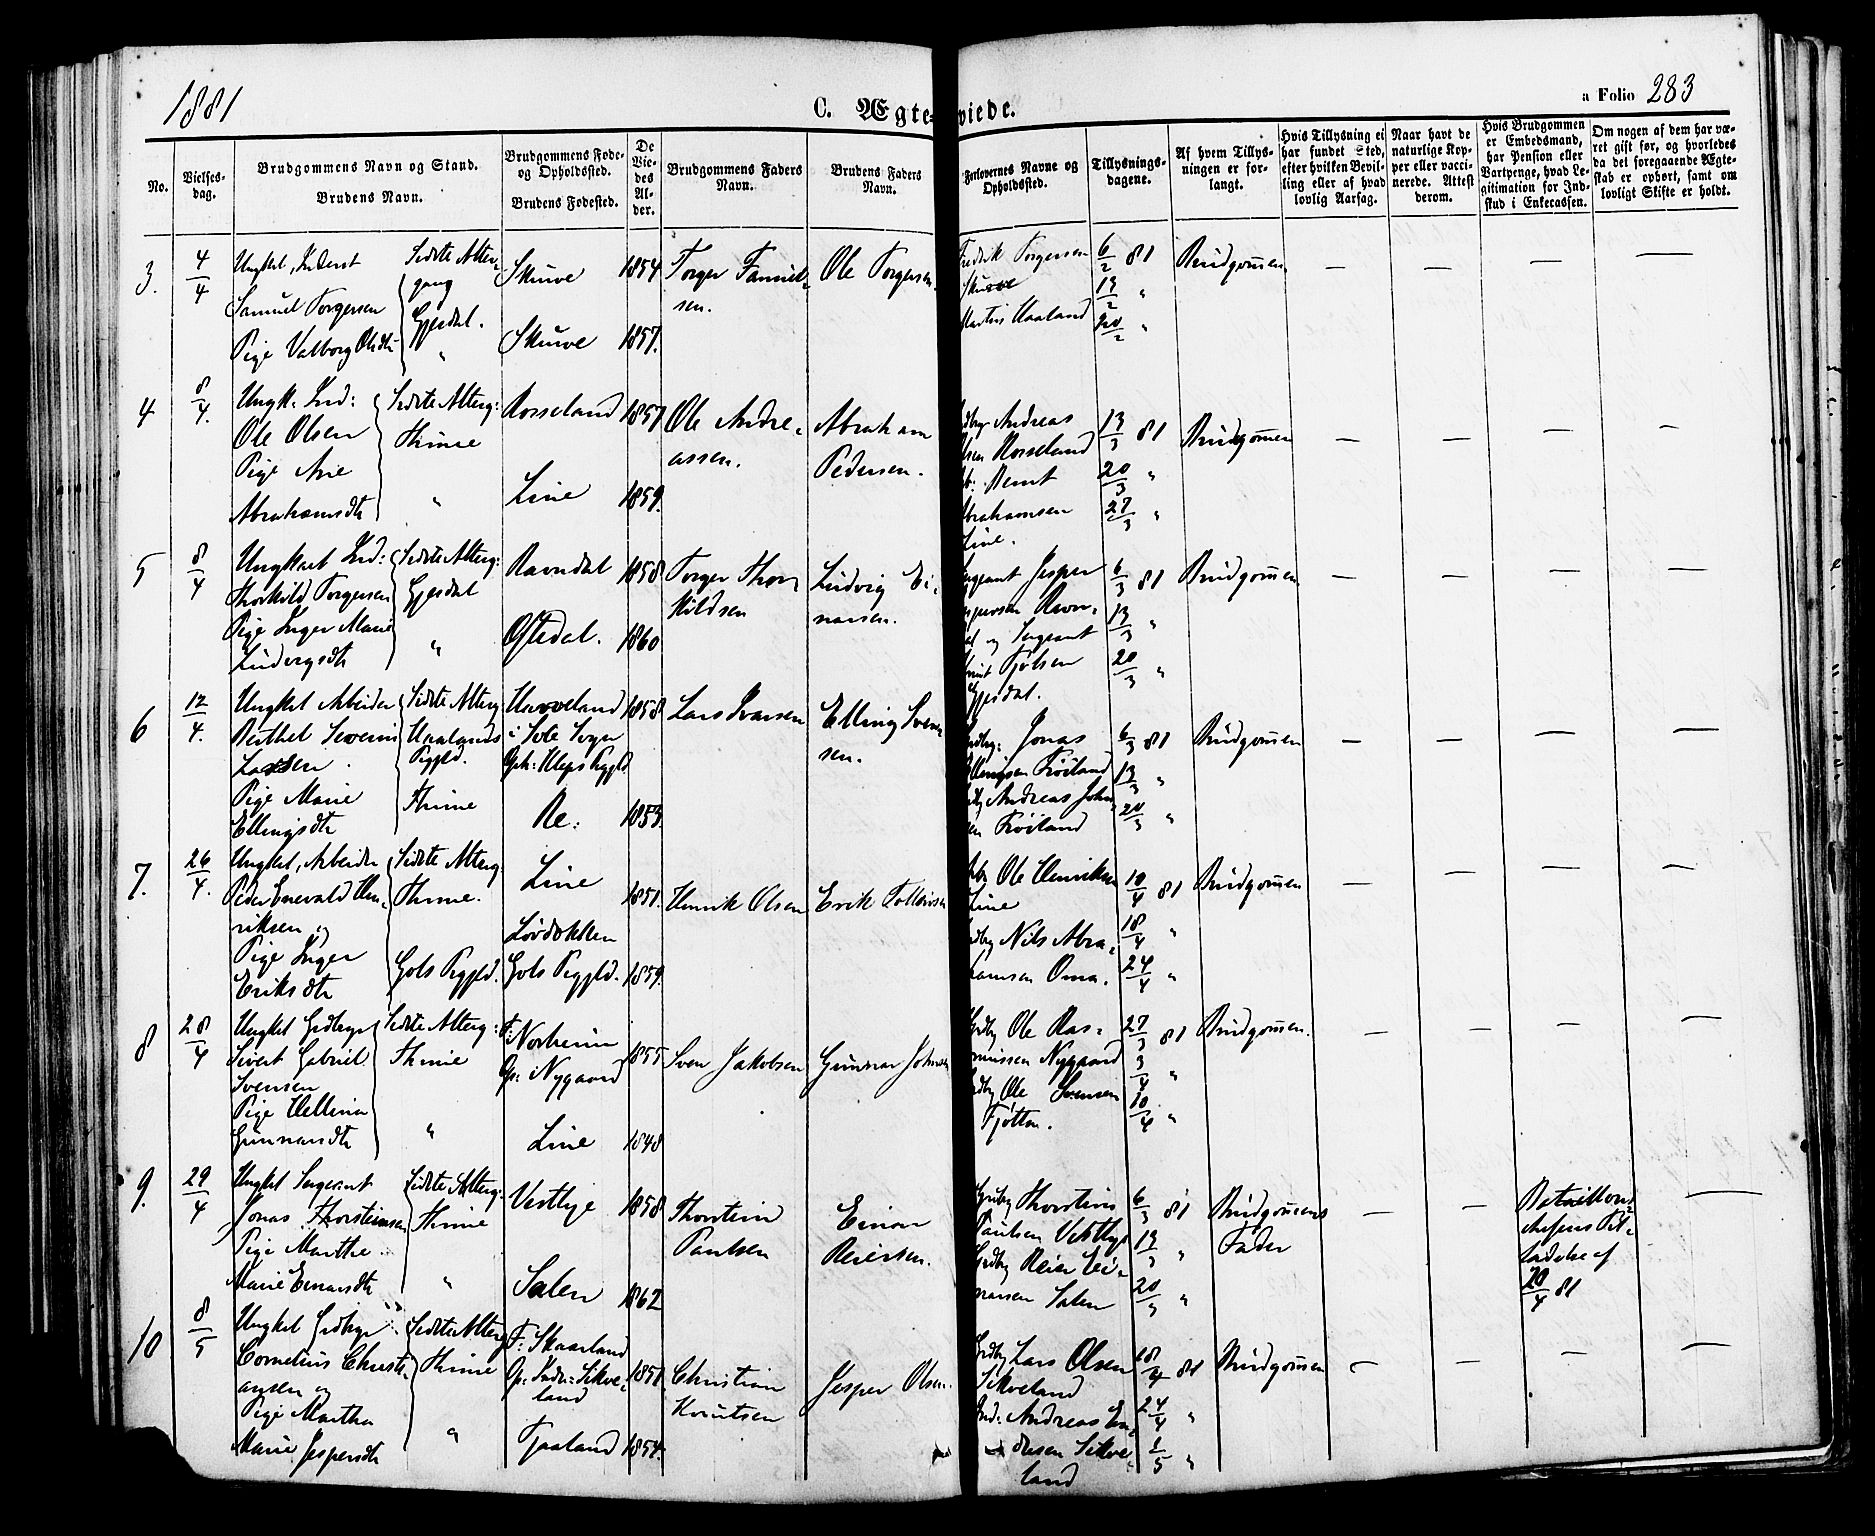 1881
C. Ægteviede.
a Folio 283
No.
Vielsesdag.
Brudgommens Navn og Stand.
Brudens Navn.
Brudgommens Føde- og Opholdssted.
Brudens Fødested.
De Viedes Alder.
Brudgommens Faders Navn.
Brudens Faders Navn.
Forlovernes Navne og Opholdssted.
Tillysningsdagene.
Af hvem Tillysningen er forlangt.
Hvis Tillysning ei har fundet Sted, efter hvilken Bevilling eller af hvad lovlig Aarsag.
Naar havt de naturlige Kopper eller vaccinerede. Attest derom.
Hvis Brudgommen er Embedsmand, har Pension eller Vartpenge, hvad Legitimation for Indskud i Enkecassen.
Om nogen af dem har været gift før, og hvorledes da det foregaaende Ægteskab er ophørt, samt om lovligt Skifte er holdt.
3.
4/4
Samuel Torgersen
Pige Valborg Olsdtr
Sidste Alter-
gang
Gjesdal.
"
Skurve
Skurve
1854
1857.
Torger Samuel-
sen.
Ole Torgersen.
Fredrik Torgersen
Skurve
Martin Haaland
6/2 81
13/2 "
20/2 "
Brudgommen
4
8/4.
Ungk. Ind:
Ole Olsen
Pige Ane
Abrahamsdtr
Sidste Alterg:
Thime
"
Rosseland
Line
1857
1859.
Ole Andre-
assen.
Abraham
Pedersen.
Andreas
Rosseland
Bernt
Abrahamsen
Line.
13/3 81
20/3 "
27/3 "
Brudgommen
5
8/4
Ungkarl Ind:
Thorkild Torgersen
Pige Inger Marie
Ludvigsdtr
Sidste Alterg:
Gjesdal
"
Ravndal
Oftedal.
1858
1860
Torger Thor
kildsen
Ludvig Ei-
narsen.
Sergeant Jesper
Jespersen Ravn-
dal og Sergeant
Tjølsen
Gjesdal.
6/3 81
13/3 "
20/3 "
Brudgommen
6
12/4.
Ungkal Arbeider
Berthel Severin
Larsen.
Pige Marie
Ellingsdtr
Sidste Alterg
Haalands
Prgjld.
Thime
Haveland
i Sole Sogn
Oph: Kleps Prgjld
Re:
1858
1853.
Lars Ivarsen
Elling Sven-
sen.
Jonas
Ellingsen Frøiland
Andreas John-
sen Frøiland
6/3 81
13/3 "
20/3 "
Brudgommen
7.
26/4.
Ungkal, Arbeider
Peder Enevald Hen-
riksen og
Pige Inger
Eriksdtr
Sidste Alterg
Thime.
Gols Prgjld.
Line
Gols Prgjld.
1851.
1859.
Henrik Olsen
Erik
Ole Henriksen
Line
Nils Abra-
hamsen Oma.
10/4 81
18/4 "
24/4 "
Brudgommen
8
28/4
Ungkal Grdbrgr
Sivert Gabriel
Svensen
Pige Hellina
Gunnarsdtr
Sidste Alterg:
Thime
"
F: Norheim
Op: Nygaard
Line
1855
1848
Sven Jakobsen
Gunnar Johnsen
Ole Ras-
mussen Nygaard
Ole Svensen
Tjøtta.
27/3 81
3/4 "
10/4 "
Brudgommen.
9.
29/4
Ungkal Sergeant
Jonas Thorsteinsen
Pige Marthe
Marie Einarsdtr
Sidste Alterg:
Thime
"
Vestlye
Salen
1858
1862
Thorstein
Paulsen
Einar
Reiersen.
Thorstein
Paulsen Vestlye
Reier Ei-
narsen Salen
6/3 81
13/3 "
20/3 "
Brudgommens
Fader
Bataillons-
chefens Til-
ladelse af
20/4 81
10
8/5
Ungkal Grdbrgr
Cornelius Christi-
ansen og
Pige Martha
Marie Jespersdtr
Sidste Alterg
Thime
"
F: Skaarland
Op: Indre: Sikve-
land
Tjaaland
1851
1854.
Christian
Knutsen
Jesper Olsen.
Lars Olsen
Sikveland
Andreas
Sikve-
land
18/4 81
24/4 "
1/5 "
Brudgommen